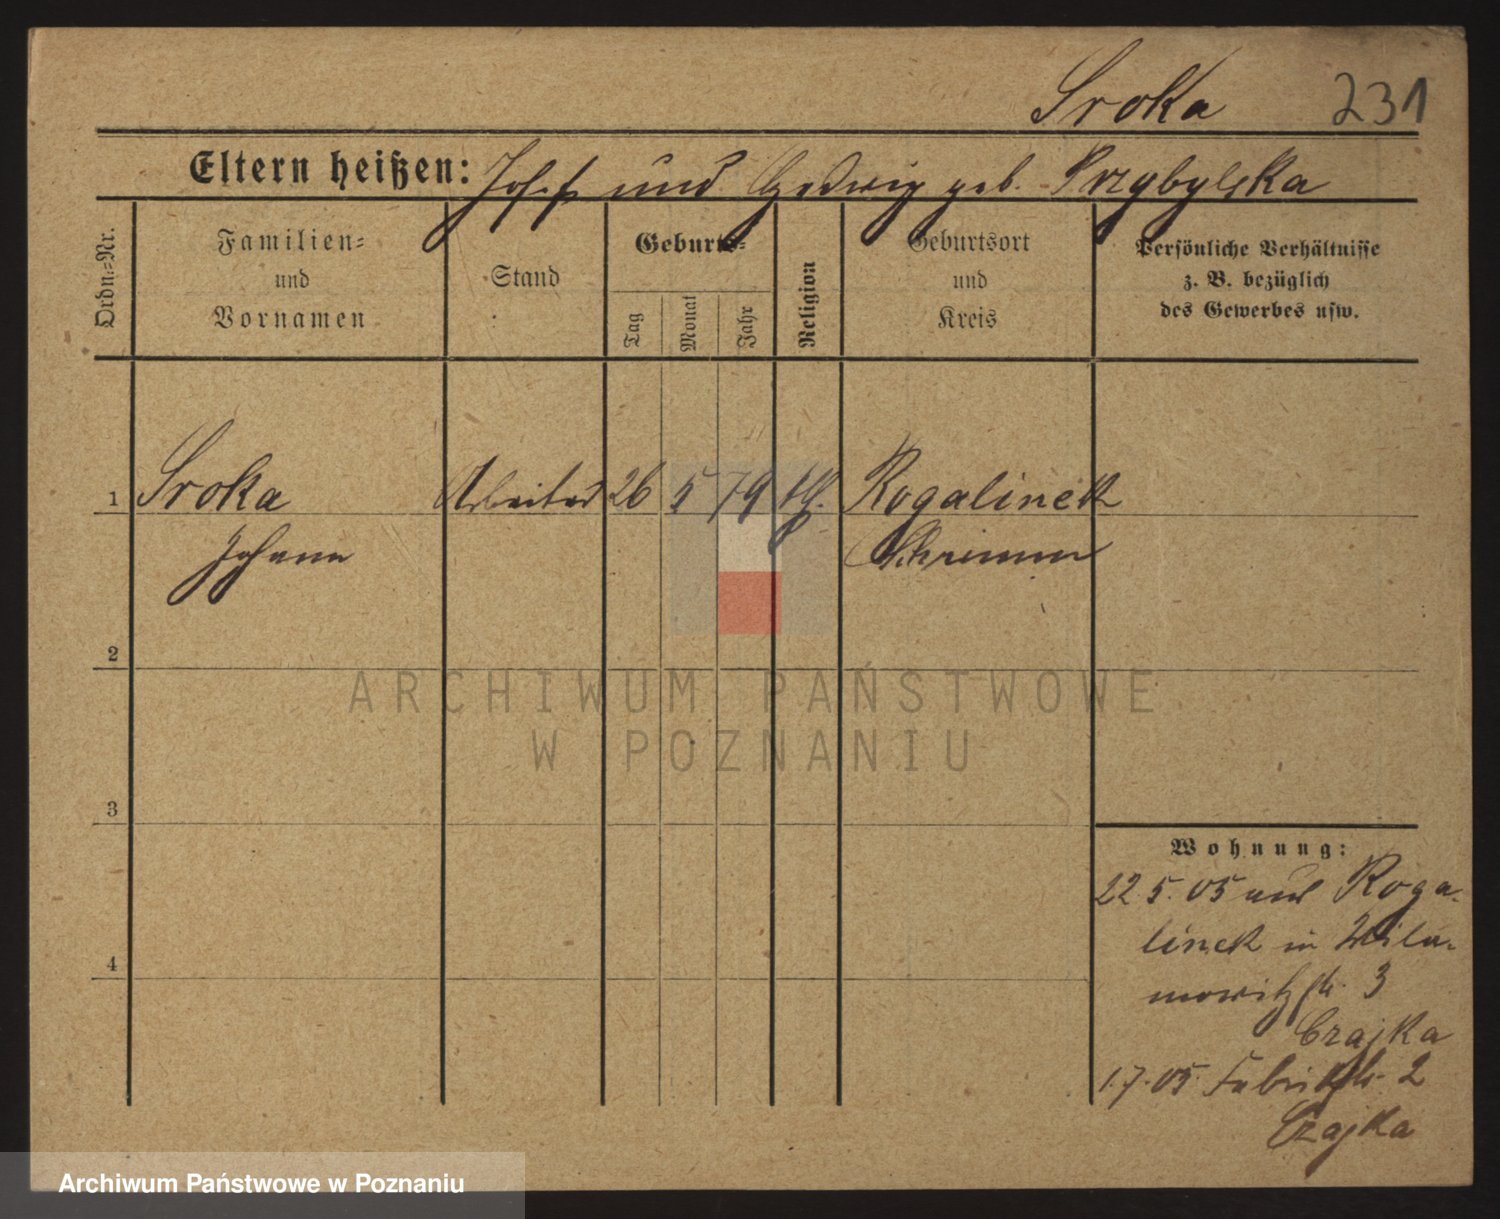 Sroka 231
Eltern heißen: Josef und Hedwig geb. Przybylska
Ordn.-Nr.
Familien-
und
Vornamen
Stand
Geburts-
Tag
Monat
Jahr
Religion
Geburtsort
und
Kreis
Persönliche Verhältnisse
z. B. bezüglich
des Gewerbes usw.
1 Sroka Arbeiter 26 5 79 kth. Rogalinek
Johann Schrimm
2
ARCHIWUM PAŃSTWOWE
W POZNANIU
3
Wohnung:
22.5.05 aus Roga-
linek in Wila-
mowitzstr. 3
Czajka
4
1.7.05. Fabrikstr. 2
Czajka
Archiwum Państwowe w Poznaniu